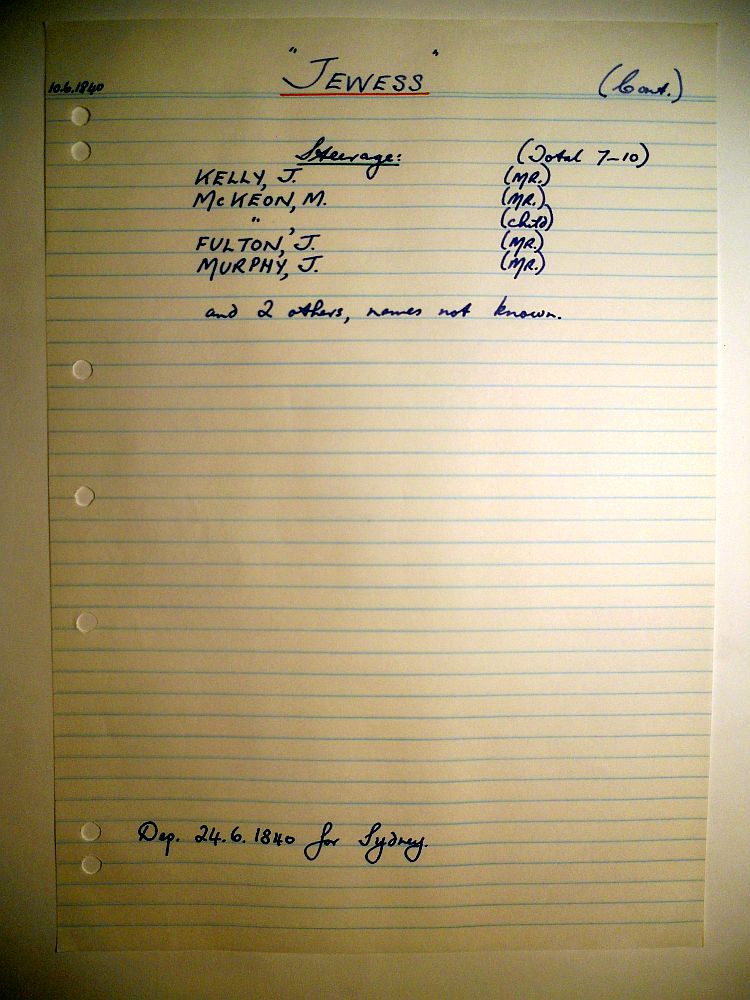 10.6.1840 "JEWESS" (Cont.)
Steerage: (Total 7-10)
KELLY, J. (MR.)
McKEON, M. (MR.)
" , (child)
FULTON, J. (MR.)
MURPHY, J. (MR.)
and 2 others, names not known.
Dep. 24.6.1840 for Sydney.